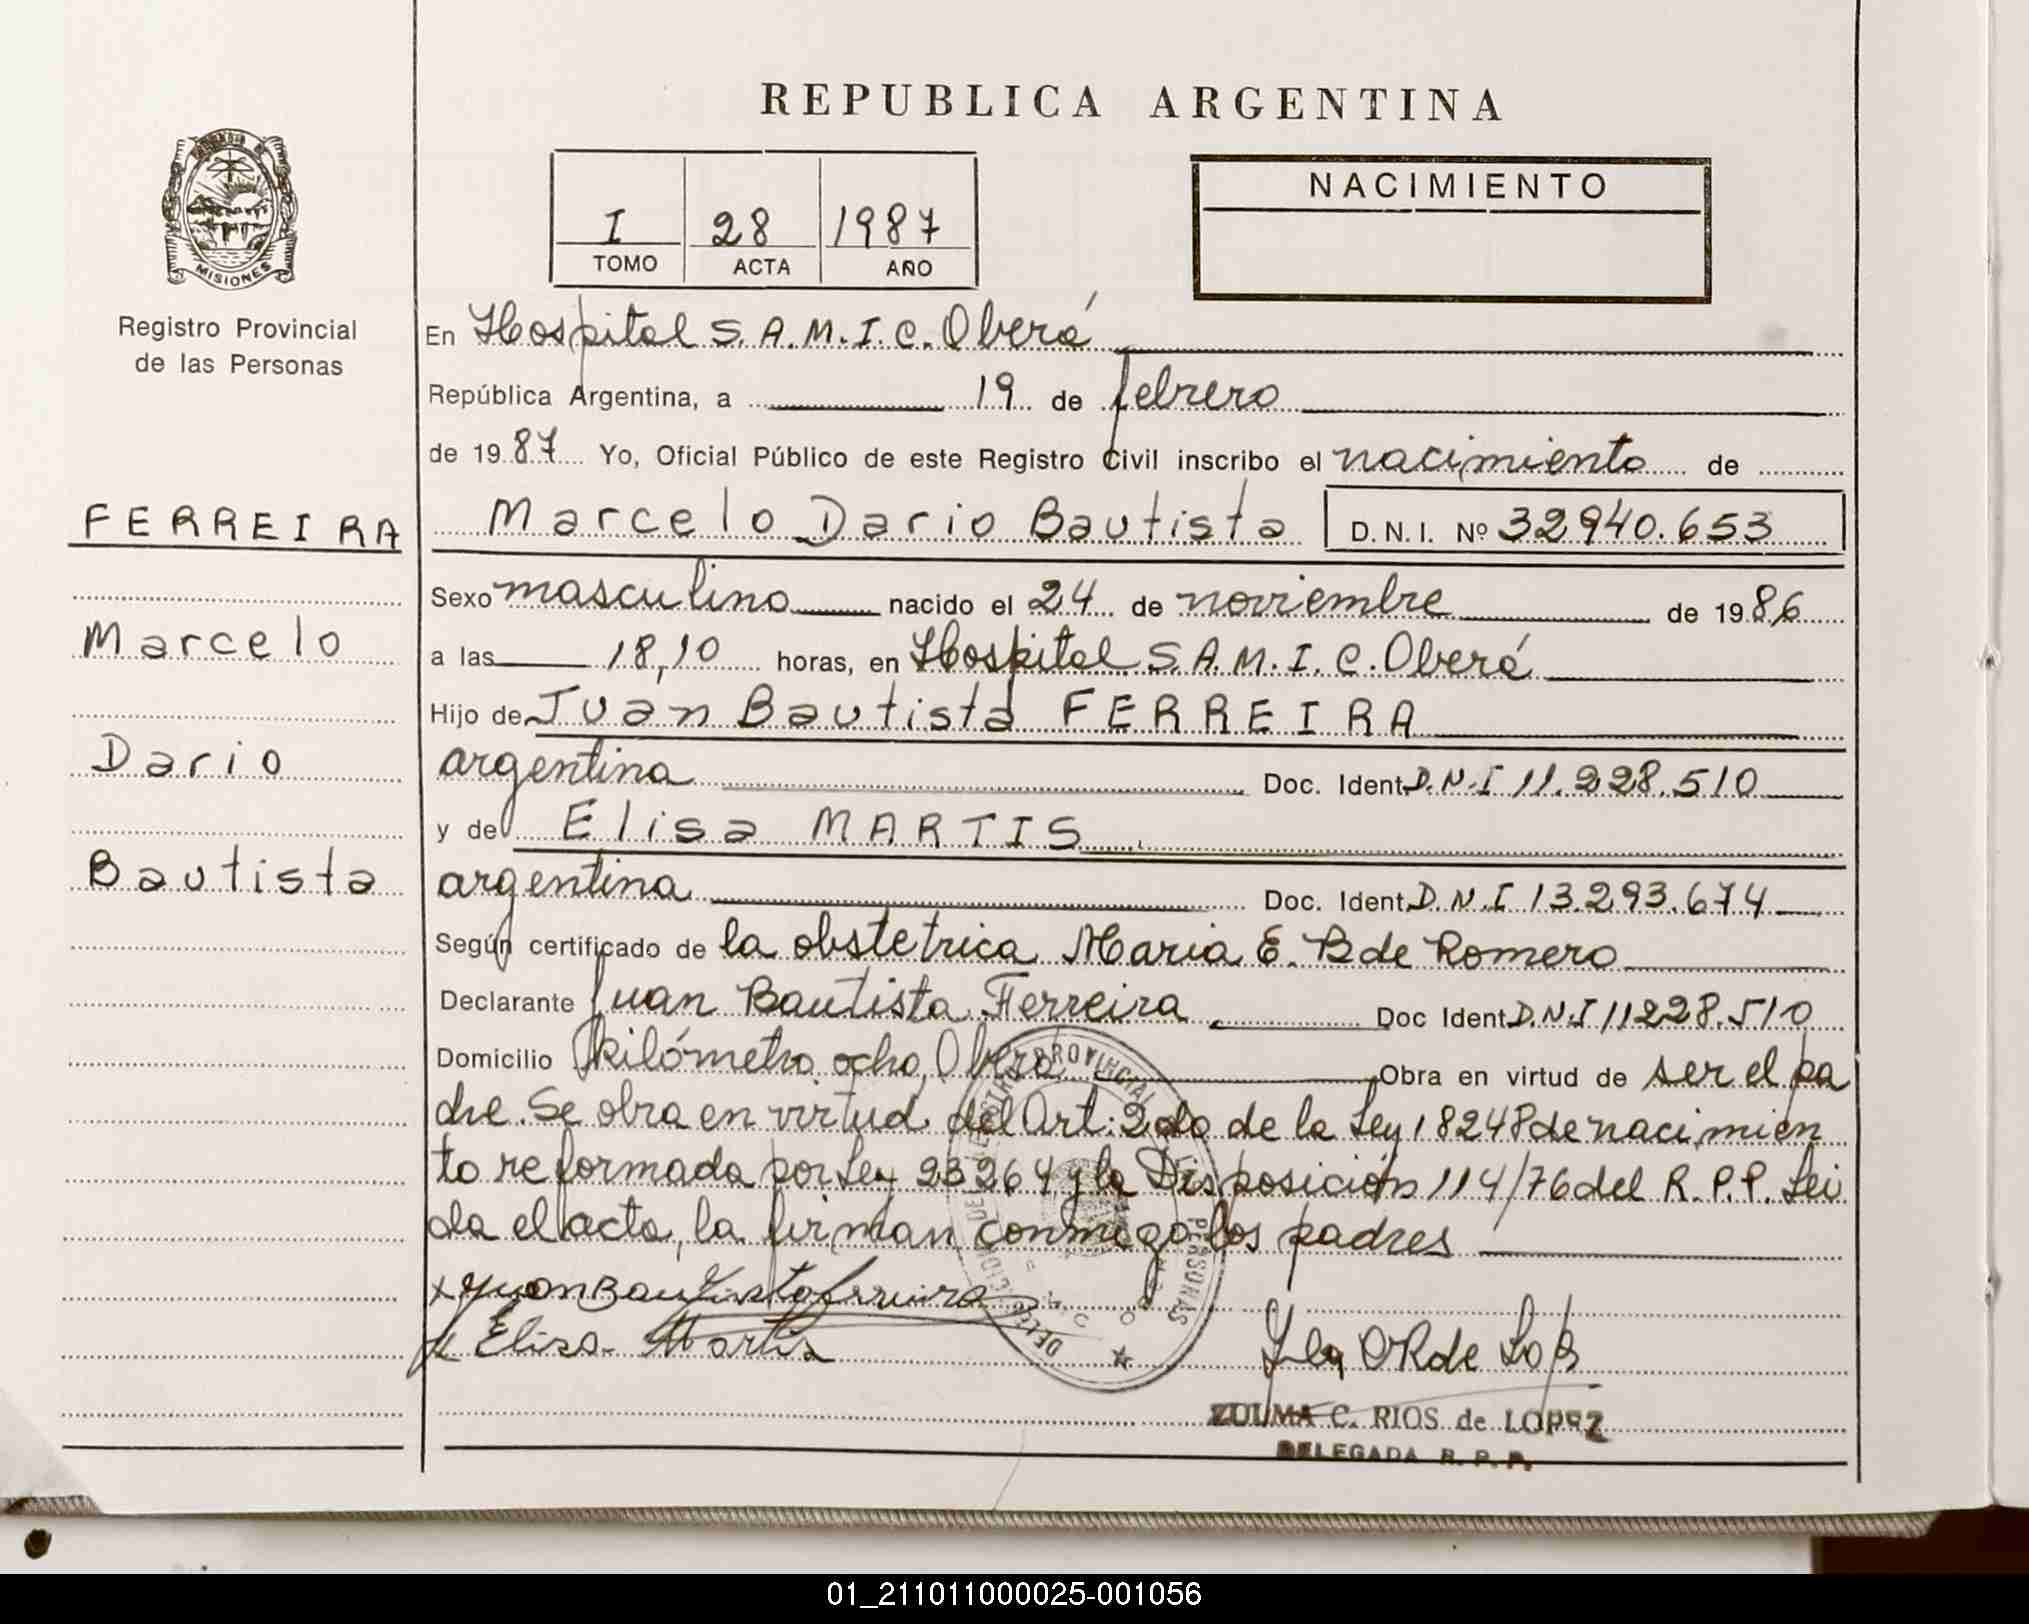 REPUBLICA ARGENTINA
MISIONES
Registro Provincial
de las Personas
I 28 1987
TOMO ACTA AÑO
NACIMIENTO
En Hospital S.A.M.I.C. Oberá
República Argentina, a 19 de febrero
de 1987 Yo, Oficial Público de este Registro Civil inscribo el nacimiento de
FERREIRA
Marcelo Dario Bautista D.N.I. Nº 32940.653
Sexo masculino nacido el 24 de noviembre de 1986
Marcelo
a las 18,10 horas, en Hospital S.A.M.I.C. Oberá
Hijo de Juan Bautista FERREIRA
Dario
argentina Doc. Ident. D.N.I 11.228.510
y de Elisa MARTIS
Bautista
argentina Doc. Ident. D.N.I 13.293.674
Según certificado de la obstetrica Maria E. B de Romero
Declarante Juan Bautista Ferreira Doc Ident. D.N.I 11228.510
Domicilio kilómetro ocho, Oberá Obra en virtud de ser el pa
dre. Se obra en virtud del Art: 2do de la Ley 18248 de nacimien
to reformada por Ley 23264 y la Disposición 114/76 del R.P.P. Lei
da el acta, la firman conmigo los padres
x Juan Bautista Ferreira
x Elisa Martis
ZULMA C. RIOS de LOPEZ
DELEGADA R. P. P.
01_211011000025-001056